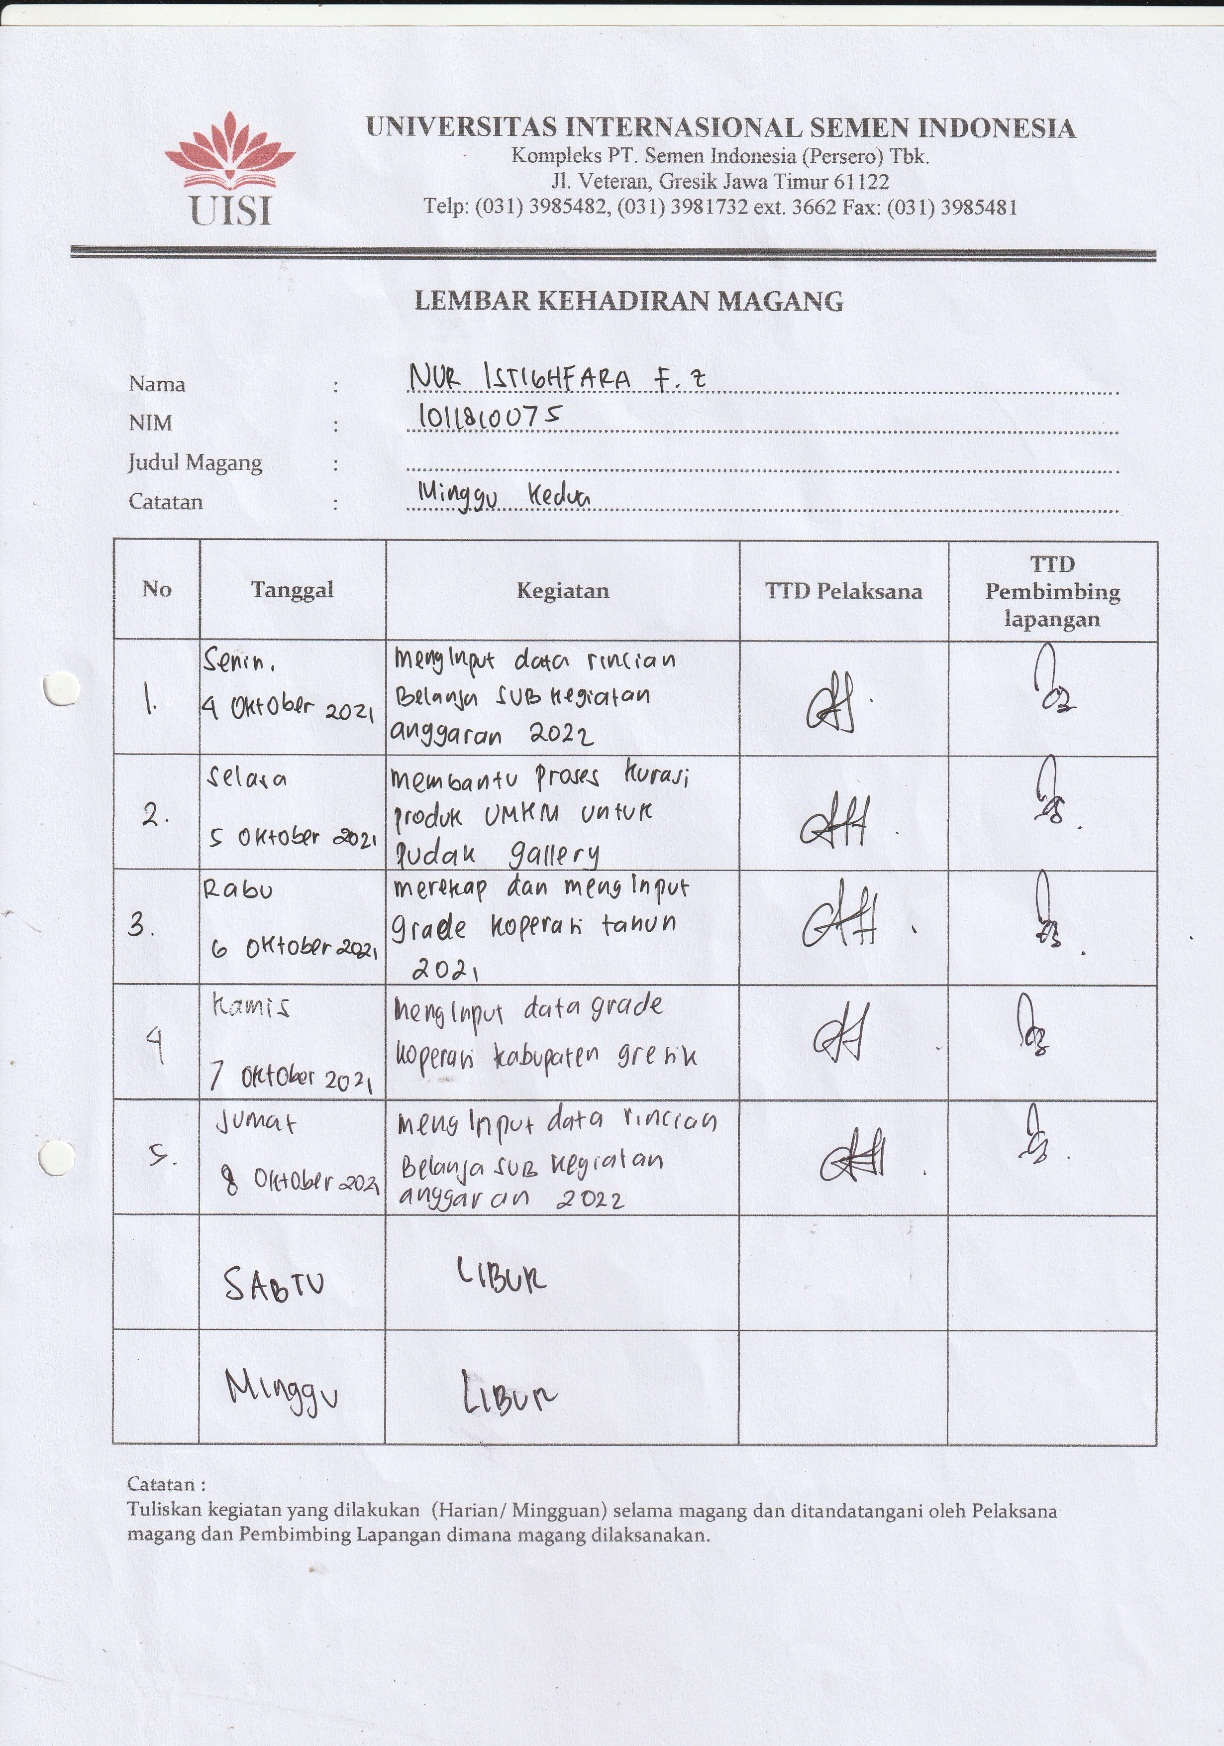 UNIVERSITAS INTERNASIONAL SEMEN INDONESIA
Kompleks PT. Semen Indonesia (Persero) Tbk.
Jl. Veteran, Gresik Jawa Timur 61122
Telp: (031) 3985482, (031) 3981732 ext. 3662 Fax: (031) 3985481
UISI
LEMBAR KEHADIRAN MAGANG
Nama : NUR ISTIGHFARA F. Z
NIM : 1011810075
Judul Magang :
Catatan : Minggu Kedua
No Tanggal Kegiatan TTD Pelaksana TTD Pembimbing lapangan
1. Senin, 4 Oktober 2021
menginput data rincian
Belanja SUB kegiatan
anggaran 2022
2. Selasa 5 Oktober 2021
membantu proses kurasi
produk UMKM untuk
pudak gallery
3. Rabu 6 Oktober 2021
merekap dan menginput
grade koperasi tahun
2021
4 Kamis 7 Oktober 2021
menginput data grade
koperasi kabupaten gresik
5. Jumat 8 Oktober 2021
menginput data rincian
Belanja SUB kegiatan
anggaran 2022
SABTU LIBUR
Minggu LIBUR
Catatan :
Tuliskan kegiatan yang dilakukan (Harian/ Mingguan) selama magang dan ditandatangani oleh Pelaksana
magang dan Pembimbing Lapangan dimana magang dilaksanakan.